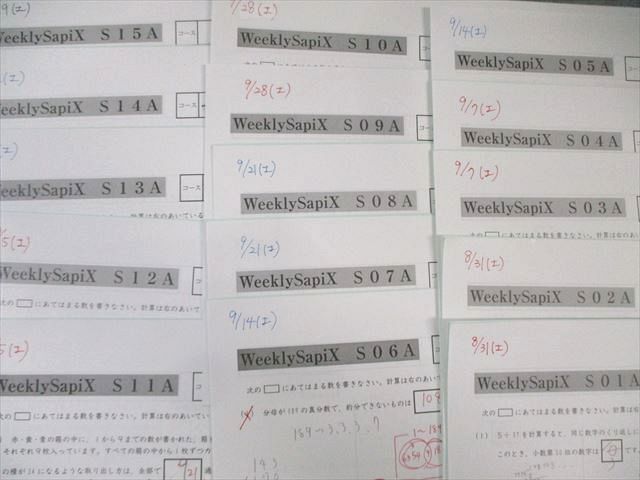 9(エ)
WeeklySapiX S15A
コース
(エ)
WeeklySapiX S14A
コース
(エ)
WeeklySapiX S13A
コース
5(エ)
WeeklySapiX S12A
次の□にあてはまる数を書きなさい。計算は右のあいて
5(エ)
WeeklySapiX S11A
コ
次の□にあてはまる数を書きなさい。計算は右のあいて
赤・青・黄の箱の中に、1から9までの数が書かれた、箱
それぞれ9枚入っています。すべての箱の中から1枚ずつカ
の積が24になるような取り出し方は、全部で
21
通
/28(エ)
WeeklySapiX S10A
9/28(エ)
WeeklySapiX S09A
コー
9/21(エ)
WeeklySapiX S08A
9/21(エ)
WeeklySapiX S07A
9/14(エ)
WeeklySapiX S06A
次の□にあてはまる数を書きなさい。計算は右のあいて
分母が189の真分数で、約分できないものは
108
189→3,3,3,7
1~189
9/14(エ)
WeeklySapiX S05A
9/7(エ)
WeeklySapiX S04A
9/7(エ)
WeeklySapiX S03A
次の□にあてはまる数を書きなさい。計算は右のあい
8/31(エ)
WeeklySapiX S02A
次の□にあてはまる数を書きなさい。計算は右のあい
8/31(エ)
WeeklySapiX S01A
次の□にあてはまる数を書きなさい。計算は右の
(1) 5÷37を計算すると、同じ数字のくり返しに
このとき、小数第50位の数字は
です。